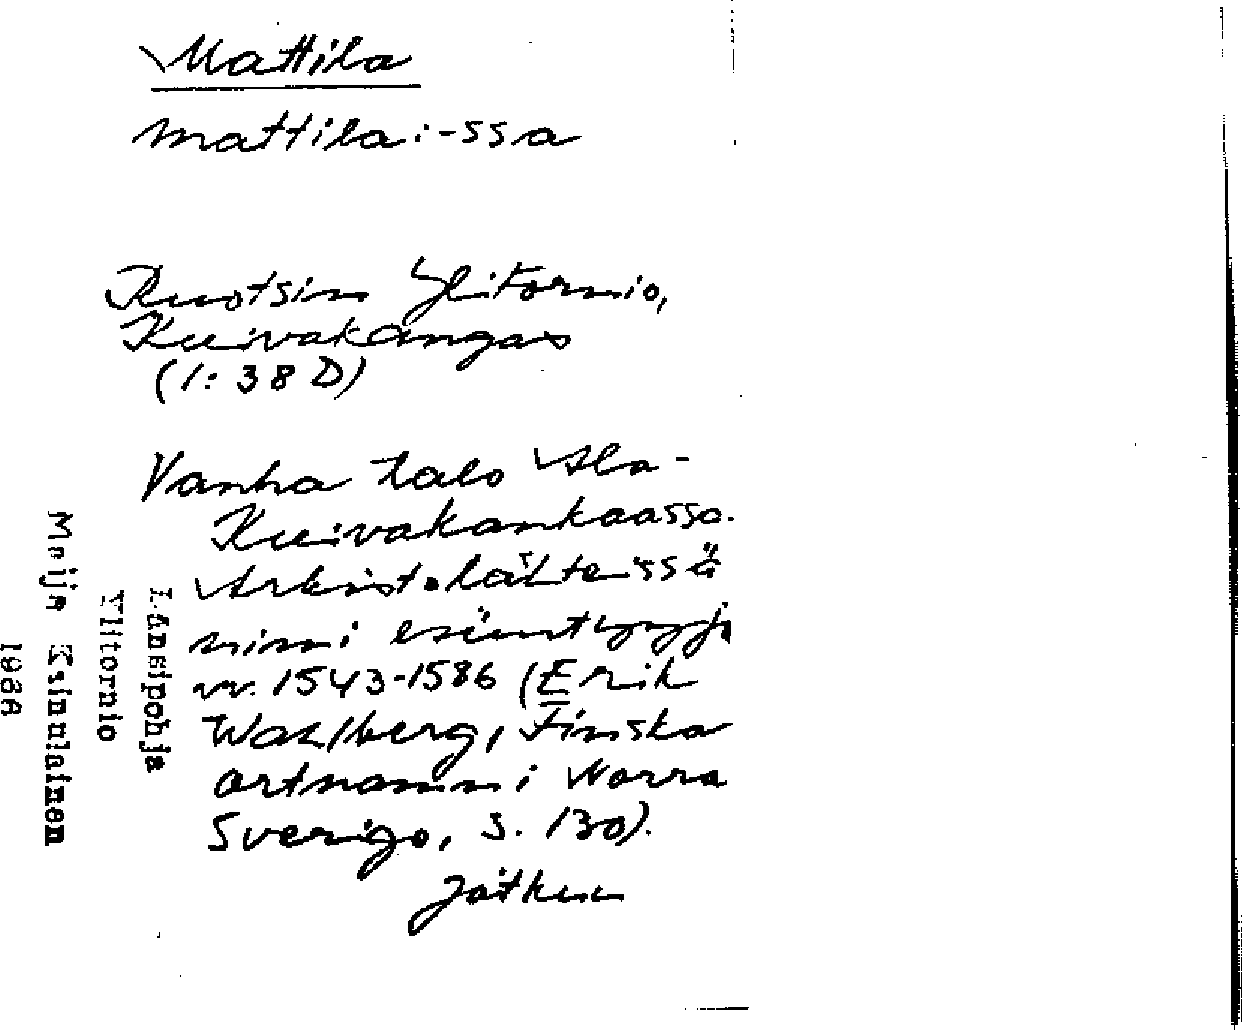 Mattila
mattila: -ssa
Ruotsin Ylitornio,
Kuivakangas
(1: 38 D)
Vanha talo Ala-
Kuivakankaassa.
Arkistolähteissä
nimi esiintyy jo
vv. 1543-1586 (Erik
Wahlberg, Finska
ortnamn i Norra
Sverige, s. 130).
Jatkuu
Länsipohja
Ylitornio
Maija Kainulainen
1986